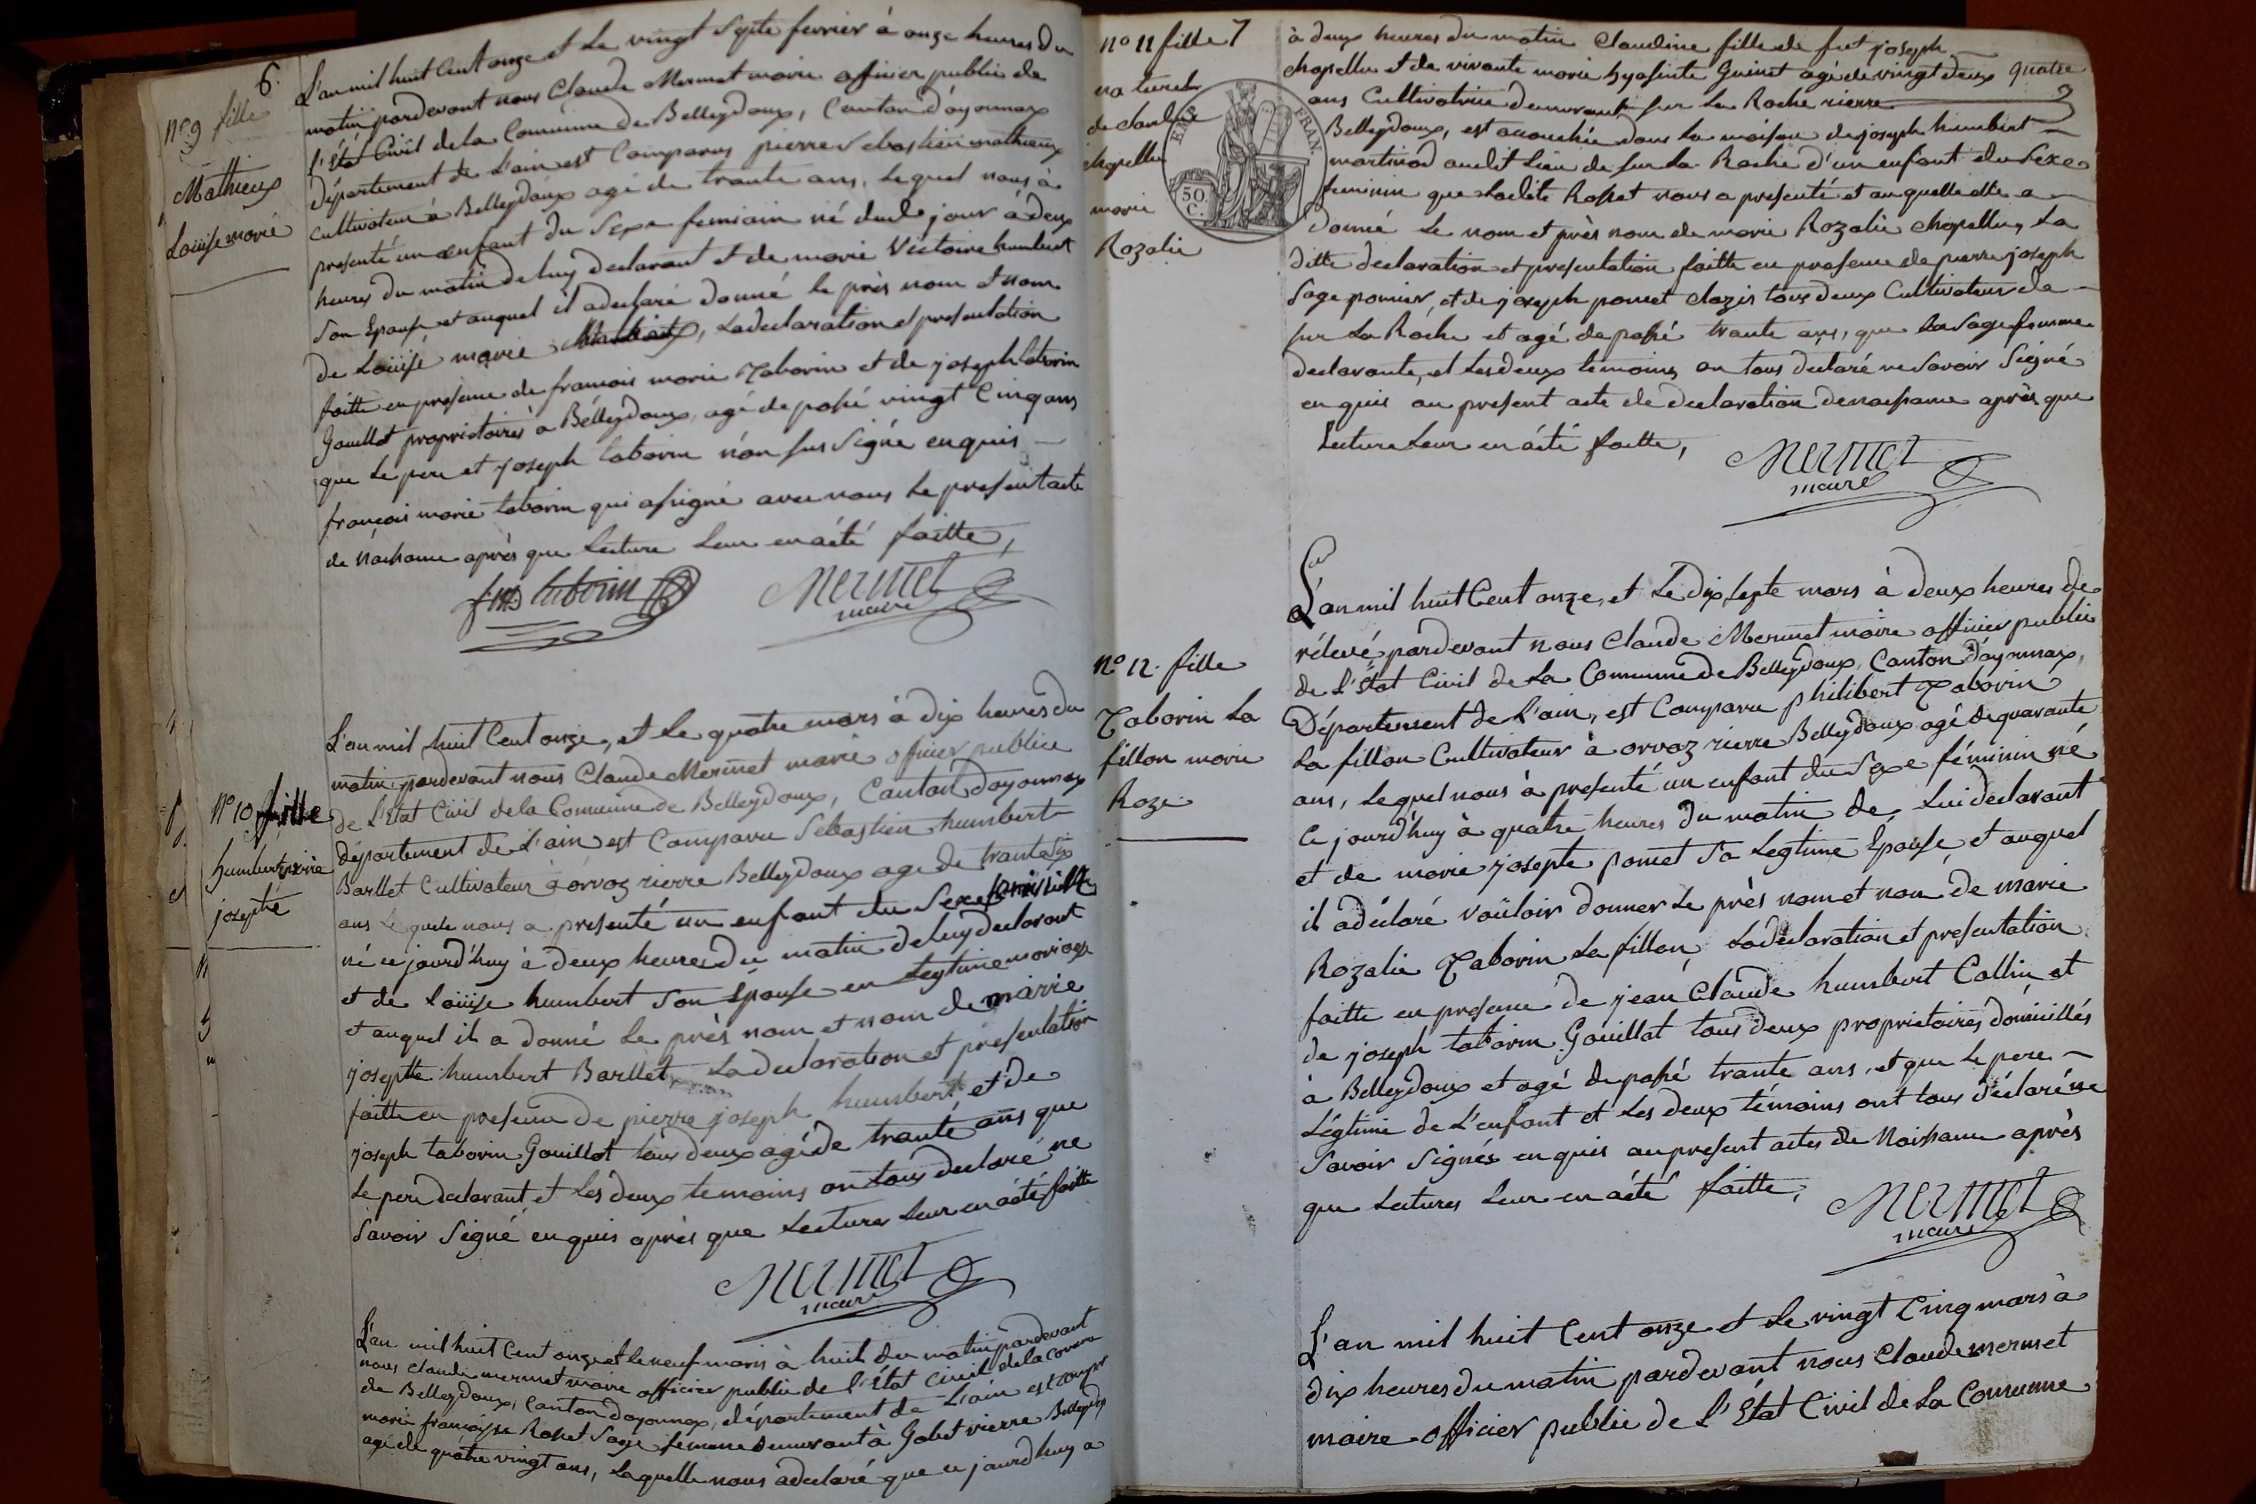 6.
n° 9 fille
Mathieux
Louise marie
L'an mil huit Cent onze et Le vingt Septe fevrier à onze heures du
matin pardevant nous Claude Mermet maire officier public de
l'État Civil de la Commune de Belleydoux, Canton d'ayonnax
Département de L'ain est Comparus pierre Sebastien mathieux
Cultivateur à Belleydoux agé de trante ans, Lequel nous à
presenté un enfant du Sexe feminin né du jour à deux
heures du matin de luy declarant et de marie Victoire humbert
Son Epouse et auquel il a declaré donné le près nom et nom
de Louise marie Mathieux, La declaration et presentation
faitte en presence de francois marie Taborin et de joseph taborin
Gouillot proprietaires à Belleydoux, agé de passé vingt Cinq ans
que Le pere et joseph taborin n'on sus Signé enquis
francois marie taborin qui a signé avec nous Le present acte
de naissance après que Lecture Leur en a été faitte,
fms taborin
Mermet
maire
N° 10 fille
humbert marie
josephe
L'an mil huit Cent onze, et Le quatre mars à dix heures du
matin pardevant nous Claude Mermet maire officier publice
de L'Etat Civil de la Commune de Belleydoux, Canton d'ayonnax
département de L'ain est Comparu Sebastien humbert
Barllet Cultivateur à orvoz rierre Belleydoux agé de trante Six
ans Le quel nous a presenté un enfant du Sexe feminin
né ce jourd'huy à deux heures du matin de luy declarant
et de Loüise humbert Son Epouse en Legtime mariage
et auquel il a donné Le près nom et nom de marie
josephte humbert Barllet La declaration et présentation
faitte en presence de pierre joseph humbert et de
joseph taborin Gouillot tous deux agé de trante ans que
Le pere declarant et Les deux temoins on tous declaré ne
Savoir Signé enquis après que Lecture Leur en a été faitte
Mermet
maire
L'an mil huit Cent onze et le neuf mars à huit du matin pardevant
nous claude mermet maire officier public de l'État civil de la Commu
de Belleydoux, Canton d'ayonnax, département de L'ain est compar
marie françoise Rosset Sage femme demeurant à Gobet rierre Belleydo
agé de quatre vingt ans, Laquelle nous a declaré que ce jourd'huy a
7
quatre
n° 11 fille
naturel
de claudine
chapellu
marie
Rozalie
EMP. FRAN.
50 C.
à deux heures du matin Claudine fille de fut joseph
chapellu et de vivante marie hyasinte Guinet agé de vingt deux
ans Cultivatrice demeurant sur La Roche rierre
Belleydoux, est accouchée dans La maison de joseph humbert
martinod audit Lieu de sur La Roche d'un enfant du Sexe
feminin que Ladite Rosset nous a presenté et auquelle elle a
donné Le nom et près nom de marie Rozalie chapellu, La
ditte declaration et presentation faitte en presence de pierre joseph
Sage pomier, et de joseph pomet clozis tous deux Cultivateur de
sur La Roche et agé de passé trante ans, que la Sage femme
declarante, et Les deux temoins on tous declaré ne Savoir Signé
en quis au present acte de declaration de naissance après que
Lecture Leur en a été faitte,
Mermet
maire
n° 12. fille
Taborin La
fillon marie
Roze
L'an mil huit Cent onze, et Le dix septe mars à deux heures de
rélevé pardevant nous Claude Mermet maire officier public
de L'État Civil de La Commune de Belleydoux, Canton d'ayonnax,
Département de L'ain, est Comparu philibert Taborin
La fillon Cultivateur à orvoz rierre Belleydoux agé de quarante
ans, Lequel nous à presenté un enfant du Sexe féminin né
Ce jourd'huy à quatre heures du matin de Lui declarant
et de marie josephe pomet Sa Legtime Epouse, et auquel
il a déclaré voüloir donner Le près nom et nom de marie
Rozalie Taborin La fillon, La déclaration et presentation
faitte en presence de jean Claude humbert Collin et
de joseph taborin Gouillat tous deux proprietaires dómicillés
à Belleydoux et agé de passé trante ans, et que Le pere
Légtime de L'enfant et Les deux témoins ont tous déclaré ne
Savoir Signés enquis au present actes de Naissance après
que Lectures Leur en a été faitte,
Mermet
maire
L'an mil huit Cent onze et Le vingt Cinq mars à
dix heures du matin pardevant nous Claude mermet
maire officier public de L'État Civil de La Commune